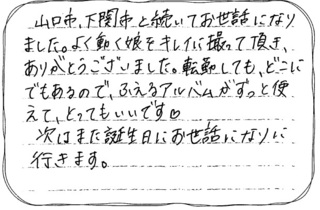 山口市、下関市と続いてお世話になり
ました。よく動く娘をキレイに撮って頂き、
ありがとうございました。転勤しても、どこに
でもあるので、ふえるアルバムがずっと使
えて、とってもいいです♡
次はまた誕生日にお世話になりに
行きます。